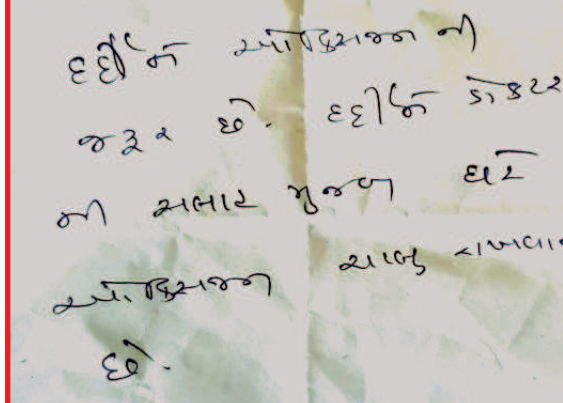 દર્દીને ઓક્સિજન ની
જરૂર છે. દર્દીને ડોકટર
ની સલાહ મુજબ ઘરે
ઓક્સિજન ચાલુ રાખવાનો
છે.